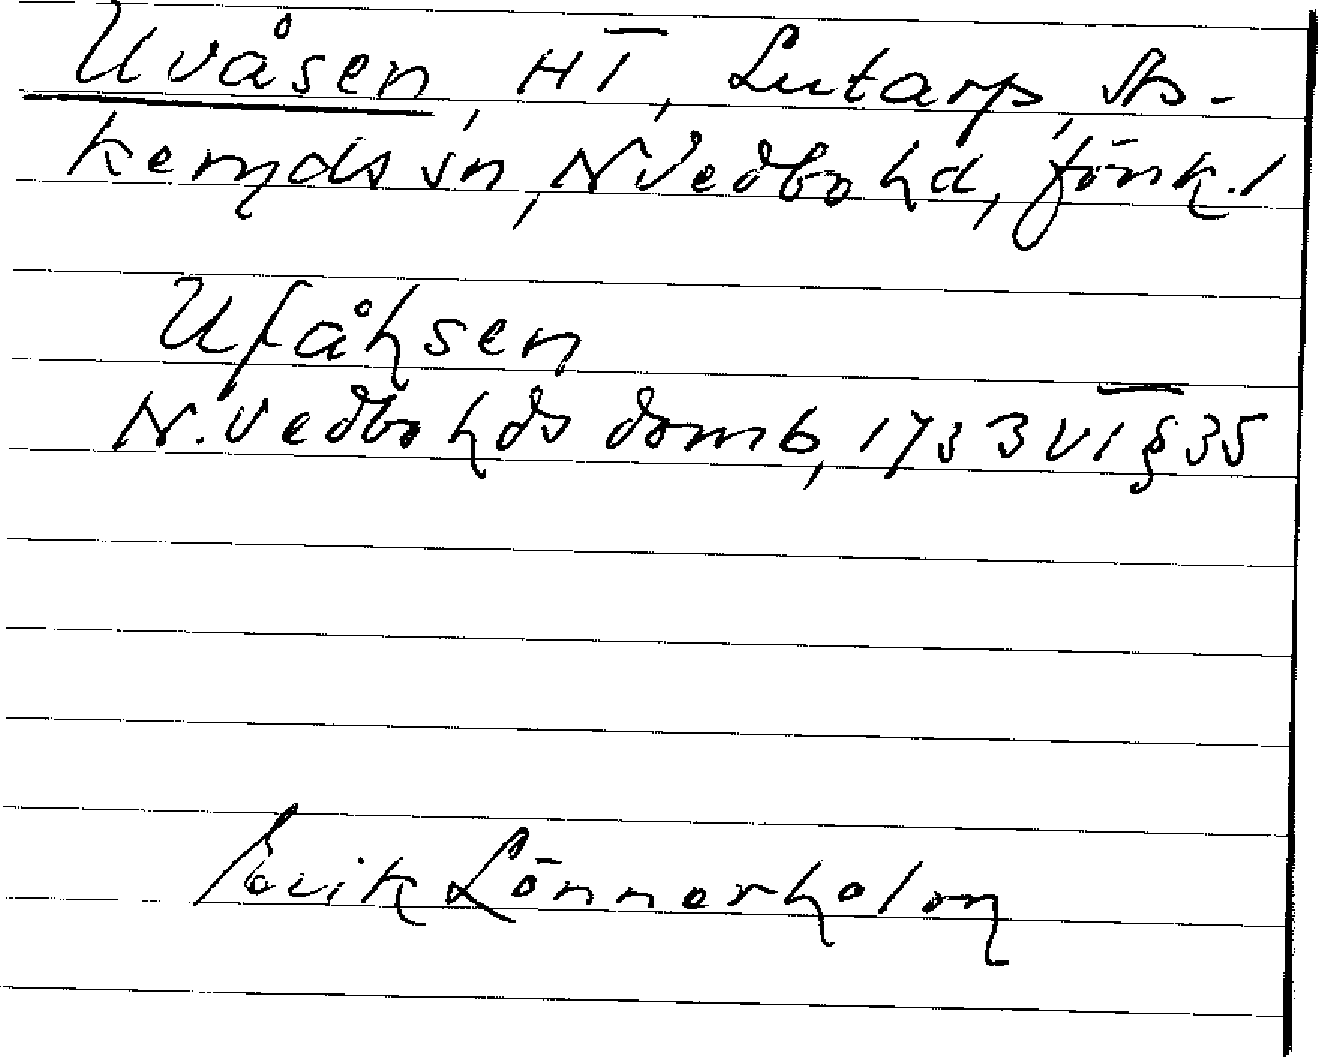 Uvåsen, HT, Lutarp, As-
keryds sn, N Vedbo hd, Jönk. l
Ufåhsen
N. Vedbo hds domb, 1733 VI § 35
Erik Lönnerholm